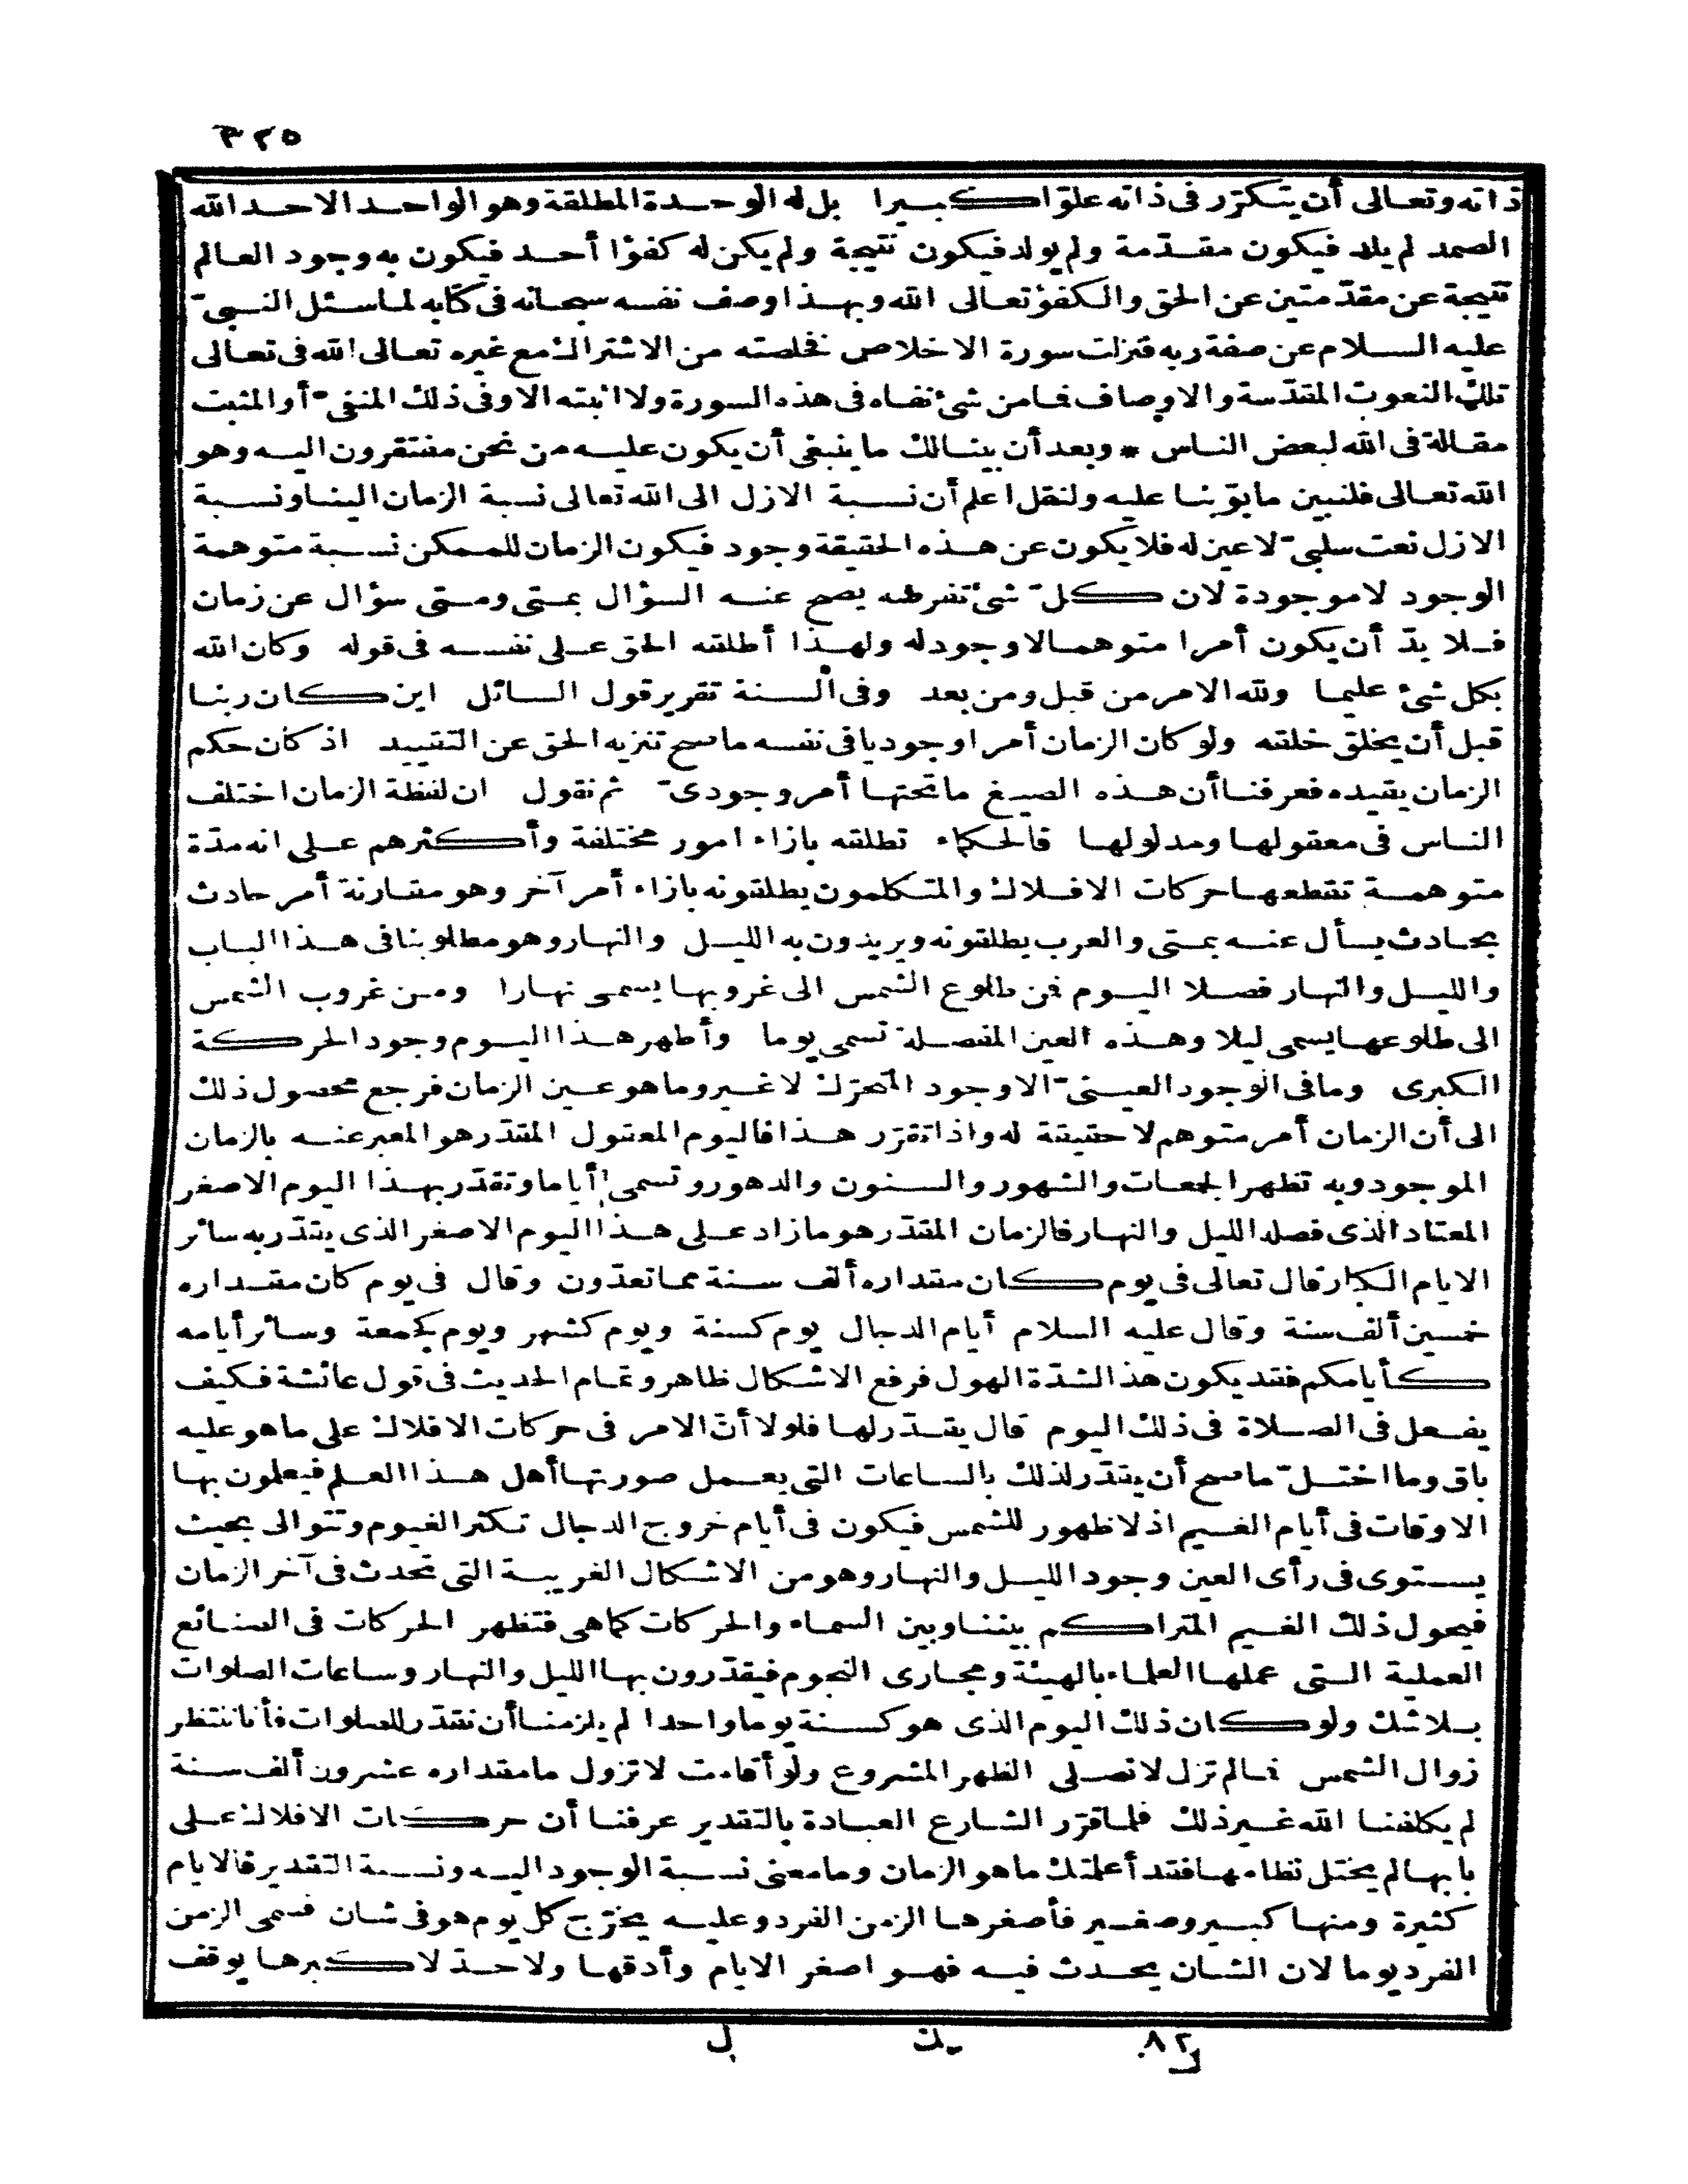 ٣٢٥
ذاته وتعالى أن يتكرّر فى ذاته علوّا كبيرا بل له الوحدة المطلقة وهو الواحد الاحد الله
الصمد لم يلد فيكون مقدّمة ولم يولد فيكون نتيجة ولم يكن له كفؤا أحد فيكون به وجود العالم
نتيجة عن مقدّمتين عن الحق والكفؤ تعالى الله وبهذا وصف نفسه سبحانه فى كتابه لما سئل النبىّ
عليه السلام عن صفة ربه فنزلت سورة الاخلاص تخلصته من الاشتراك مع غيره تعالى الله فى تعالى
تلك النعوت المقدّسة والاوصاف فما من شئ نفاه فى هذه السورة ولا اثبته الا وفى ذلك المنفىّ أو المثبت
مقالة فى الله لبعض الناس * وبعد أن بينا لك ما ينبغى أن يكون عليه من نحن مفتقرون اليه وهو
الله تعالى فلنبين ما بوّبنا عليه ولنقل اعلم أن نسبة الازل الى الله تعالى نسبة الزمان الينا ونسبة
الازل نعت سلبىّ لا عين له فلا يكون عن هذه الحقيقة وجود فيكون الزمان للممكن نسبة متوهمة
الوجود لا موجودة لان كلّ شئ تفرضه يصح عنه السؤال بمتى ومتى سؤال عن زمان
فلا بدّ أن يكون أمرا متوهما لا وجود له ولهذا أطلقه الحق على نفسه فى قوله وكان الله
بكل شئ عليما ولله الامر من قبل ومن بعد وفى السنة تقرير قول السائل اين كان ربنا
قبل أن يخلق خلقه ولو كان الزمان أمرا وجوديا فى نفسه ما صح تنزيه الحق عن التقييد اذ كان حكم
الزمان يقيده فعرفنا أن هذه الصيغ ما تحتها أمر وجودىّ ثم نقول ان لفظة الزمان اختلف
الناس فى معقولها ومدلولها فالحكماء تطلقه بازاء امور مختلفة وأكثرهم على انه مدّة
متوهمة تقطعها حركات الافلاك والمتكلمون يطلقونه بازاء أمر آخر وهو مقارنة أمر حادث
بحادث يسأل عنه بمتى والعرب يطلقونه ويريدون به الليل والنهار وهو مطلوبنا فى هذا الباب
والليل والنهار فصلا اليوم فمن طلوع الشمس الى غروبها يسمى نهارا ومن غروب الشمس
الى طلوعها يسمى ليلا وهذه العين المفصلة تسمى يوما وأظهر هذا اليوم وجود الحركة
الكبرى وما فى الوجود العينىّ الا وجود المتحرّك لا غير وما هو عين الزمان فرجع محصول ذلك
الى أن الزمان أمر متوهم لا حقيقة له واذا تقرّر هذا فاليوم المعقول المقدّر هو المعبر عنه بالزمان
الموجود وبه تظهر الجمعات والشهور والسنون والدهور وتسمى أياما وتقدّر بهذا اليوم الاصغر
المعتاد الذى فصله الليل والنهار فالزمان المقدّر هو ما زاد على هذا اليوم الاصغر الذى يقدّر به سائر
الايام الكبار قال تعالى فى يوم كان مقداره ألف سنة مما تعدّون وقال فى يوم كان مقداره
خمسين ألف سنة وقال عليه السلام أيام الدجال يوم كسنة ويوم كشهر ويوم كجمعة وسائر أيامه
كأيامكم فقد يكون هذا لشدّة الهول فرفع الاشكال ظاهر وتمام الحديث فى قول عائشة فكيف
يفعل فى الصلاة فى ذلك اليوم قال يقدّر لها فلولا أنّ الامر فى حركات الافلاك على ما هو عليه
باق وما اختلّ ما صح أن يقدّر لذلك بالساعات التى يعمل صورتها أهل هذا العلم فيعلمون بها
الاوقات فى أيام الغيم اذ لا ظهور للشمس فيكون فى أيام خروج الدجال تكثر الغيوم وتتوالى بحيث
يستوى فى رأى العين وجود الليل والنهار وهو من الاشكال الغريبة التى تحدث فى آخر الزمان
فيحول ذلك الغيم المتراكم بيننا وبين السماء والحركات كما هى فتظهر الحركات فى الصنائع
العملية التى عملها العلماء بالهيئة ومجارى النجوم فيقدّرون بها الليل والنهار وساعات الصلوات
بلا شك ولو كان ذلك اليوم الذى هو كسنة يوما واحدا لم يلزمنا أن نقدّر للصلوات فأنا ننتظر
زوال الشمس فما لم تزل لا نصلى الظهر المشروع ولو أقامت لا تزول ما مقداره عشرون ألف سنة
لم يكلفنا الله غير ذلك فلما قرّر الشارع العبادة بالتقدير عرفنا أن حركات الافلاك على
بابها لم يختل نظامها فقد أعلمتك ما هو الزمان وما معنى نسبة الوجود اليه ونسبة التقدير فالايام
كثيرة ومنها كبير وصغير فأصغرها الزمن الفرد وعليه يخرّج كل يوم هو فى شان فسمى الزمن
الفرد يوما لان الشان يحدث فيه فهو اصغر الايام وأدقها ولا حدّ لاكبرها يوقف
٨٢ ل